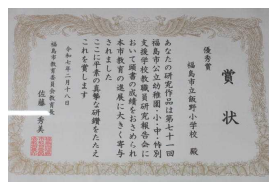 賞状
優秀賞
福島市立飯野小学校 殿
あなたの研究作品は第七十一回
福島市公立幼稚園・小・中・特別
支援学校教職員研究報告会に
おいて頭書の成績をおさめられ
本市教育の進展に大きく寄与
されました
ここに平素の真摯な研鑽をたたえ
これを賞します
令和七年二月十八日
福島市教育委員会教育長
佐藤秀美